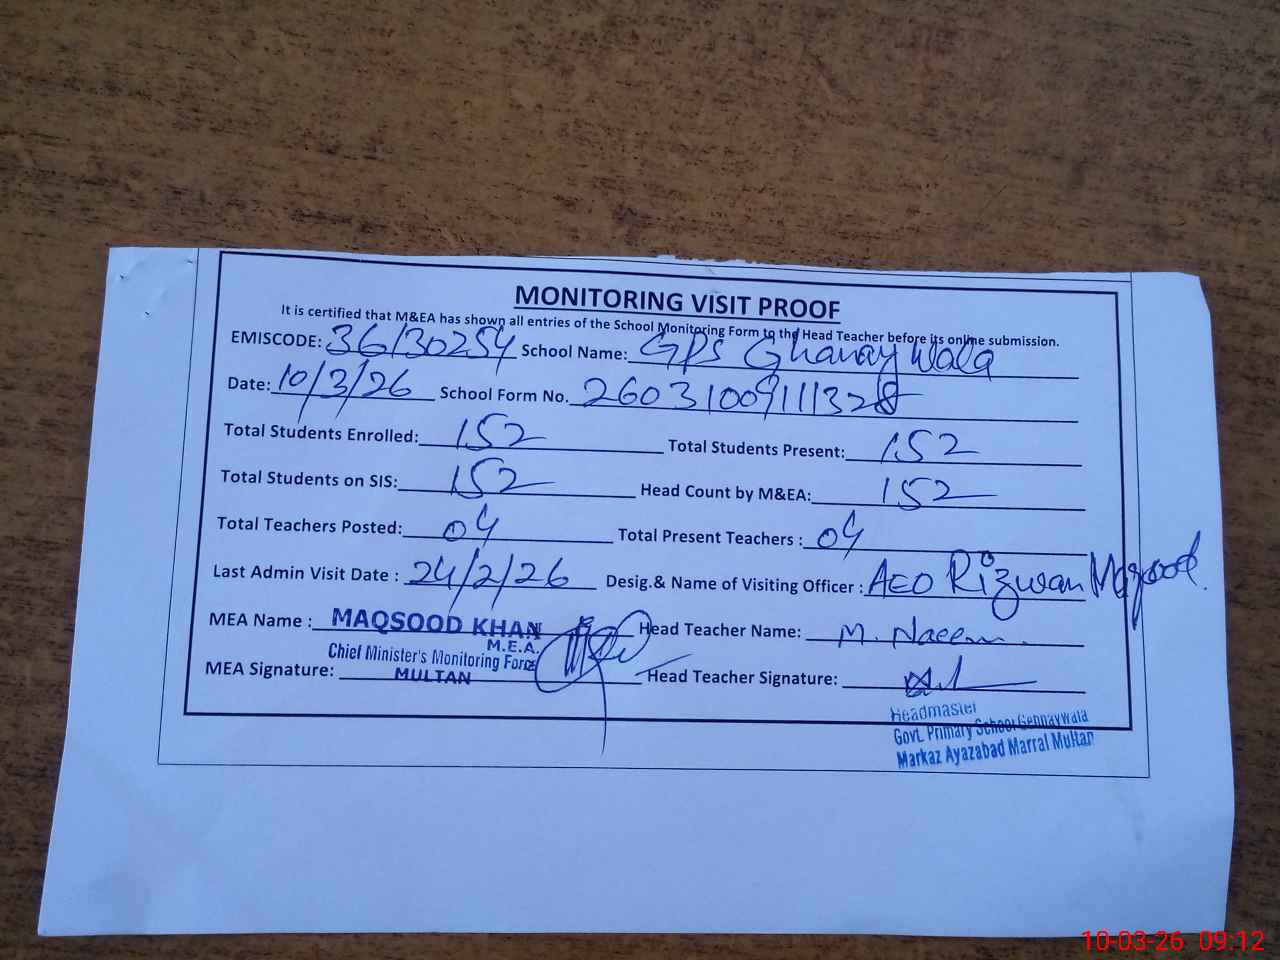 MONITORING VISIT PROOF
It is certified that M&EA has shown all entries of the School Monitoring Form to the Head Teacher before its online submission.
EMISCODE: 36130254 School Name: GPS Ghanay Wala
Date: 10/3/26 School Form No. 26031009111328
Total Students Enrolled: 152 Total Students Present: 152
Total Students on SIS: 152 Head Count by M&EA: 152
Total Teachers Posted: 04 Total Present Teachers : 04
Last Admin Visit Date : 24/2/26 Desig.& Name of Visiting Officer : AEO Rizwan Maqsood.
MEA Name : MAQSOOD KHAN Head Teacher Name: M. Naeem
M.E.A.
Chief Minister's Monitoring Force
MEA Signature: MULTAN Head Teacher Signature:
Headmaster
Govt. Primary School Gennaywala
Markaz Ayazabad Marral Multan
10-03-26 09:12